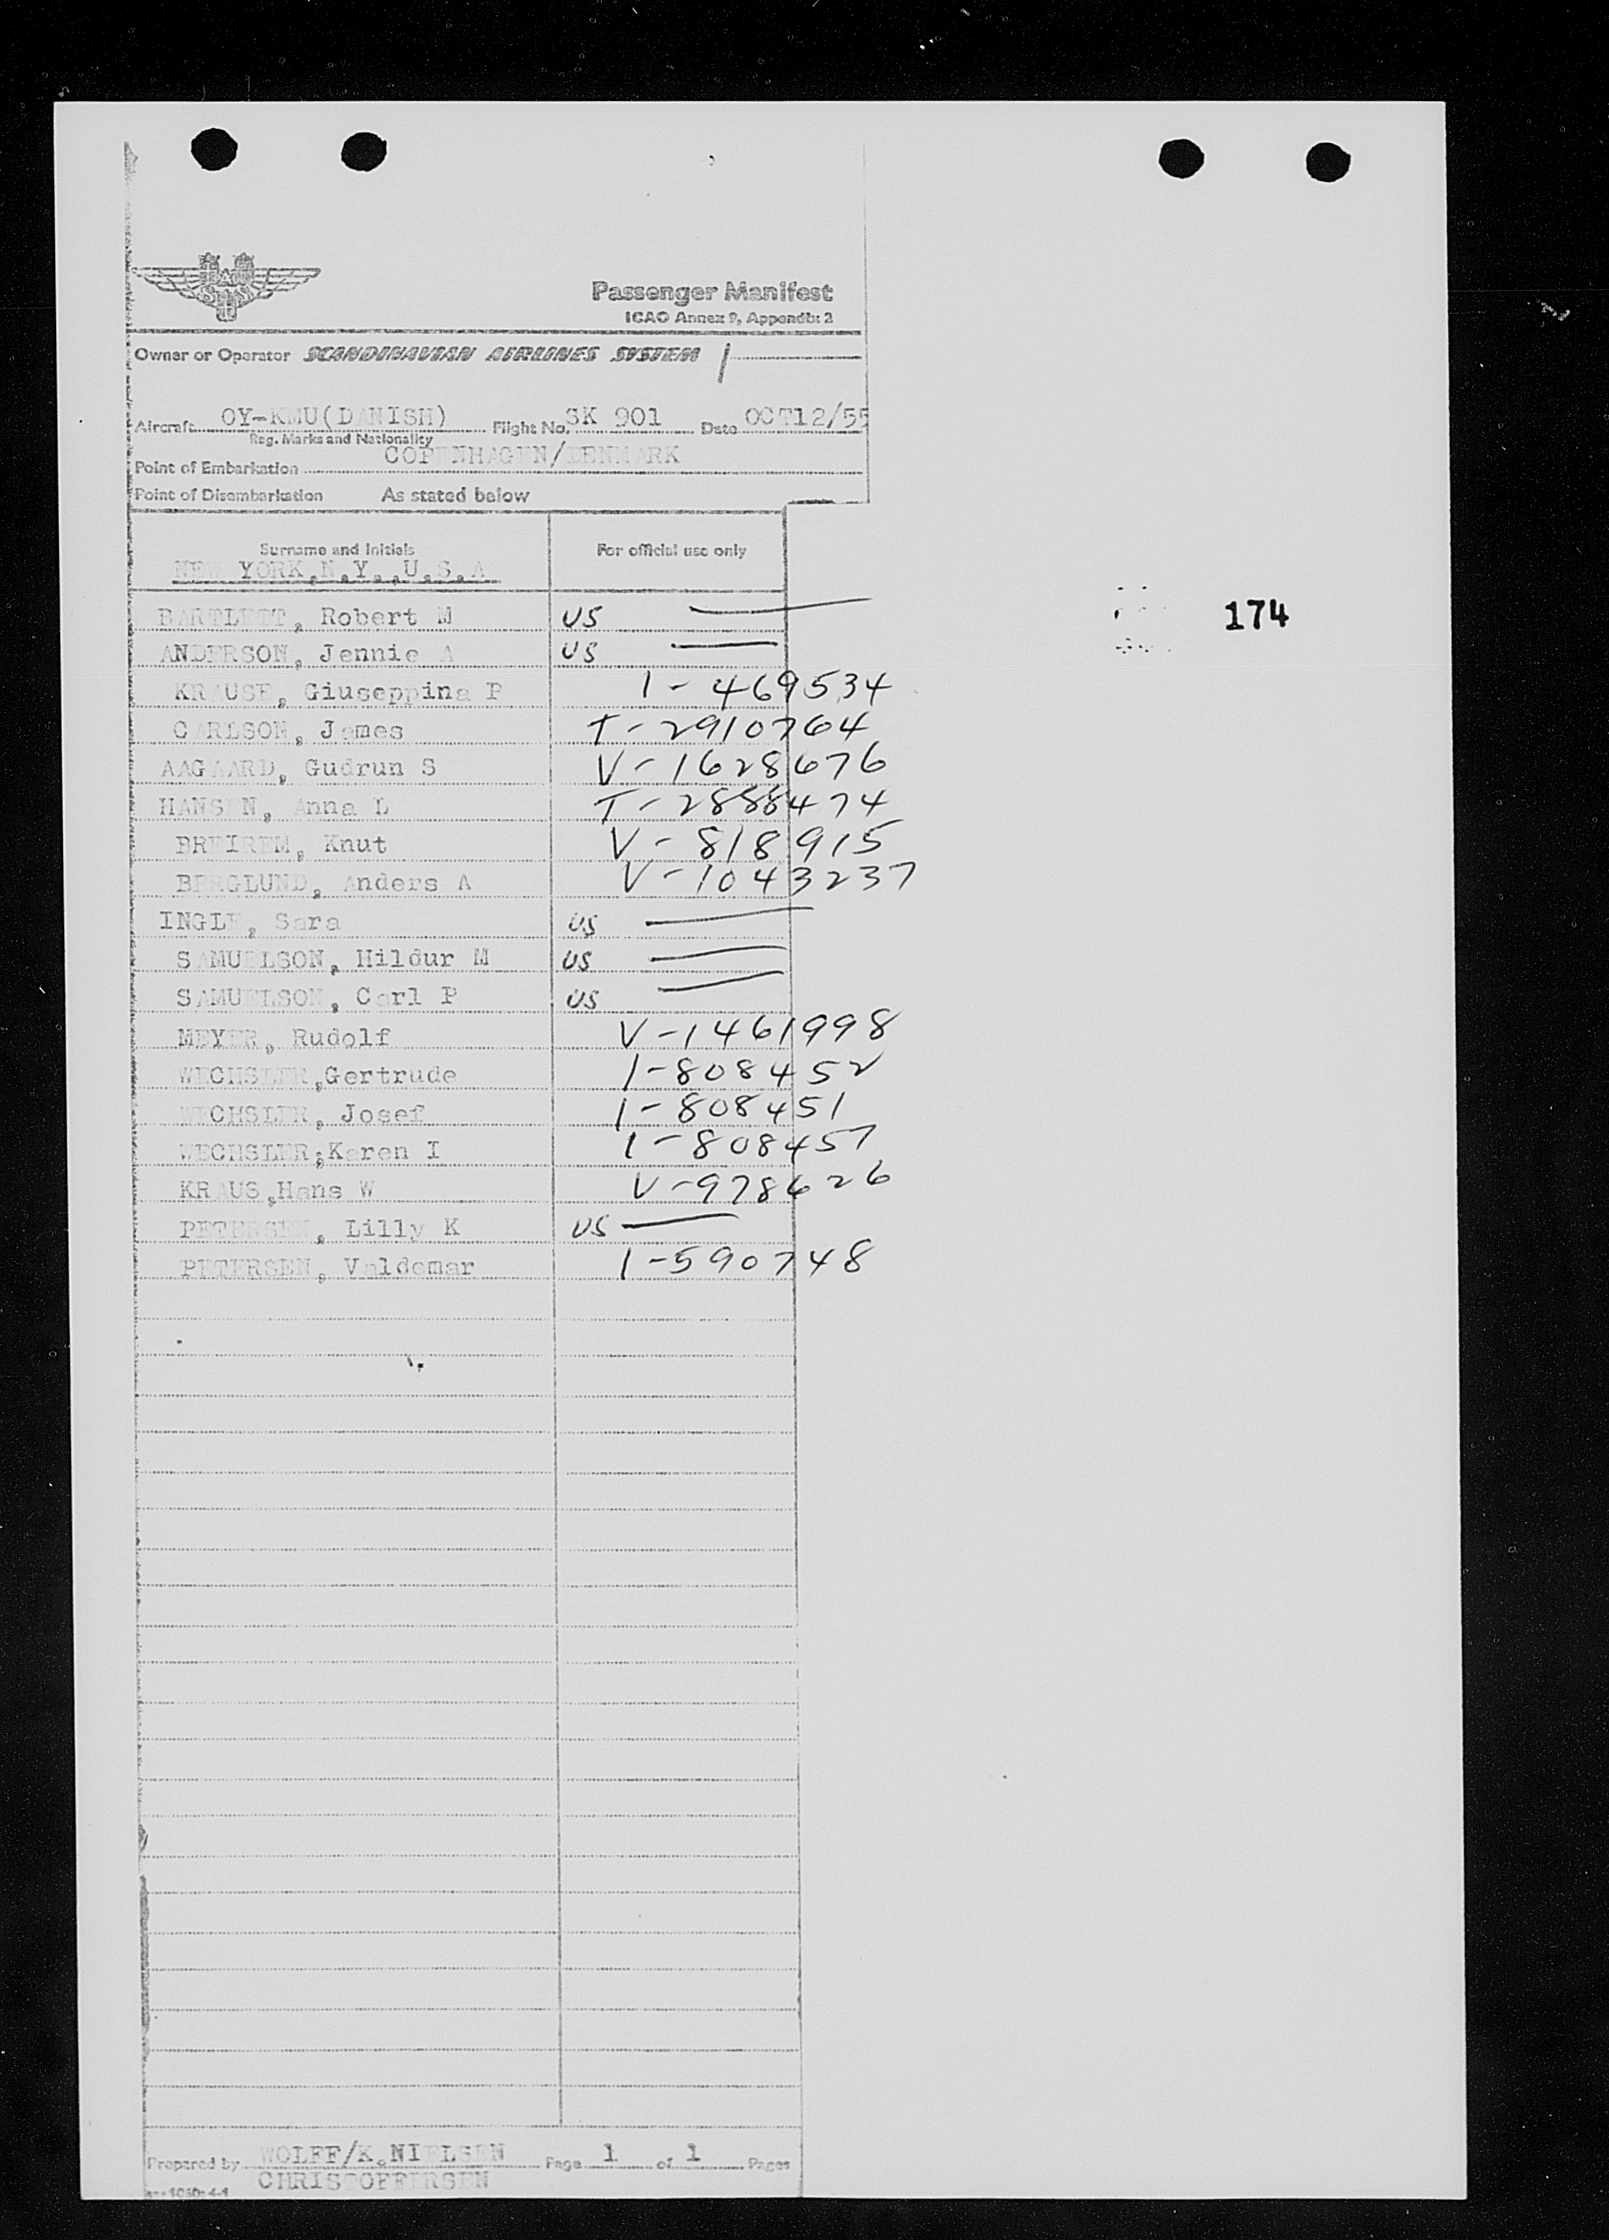 SAS
Passenger Manifest
ICAO Annex 9, Appendix 2
Owner or Operator SCANDINAVIAN AIRLINES SYSTEM
Aircraft OY-KMU(DANISH) Flight No. SK 901 Date OCT12/55
Reg. Marks and Nationality
Point of Embarkation COPENHAGEN/DENMARK
Point of Disembarkation As stated below
Surname and Initials For official use only
NEW YORK,N.Y.,U.S.A
BARTLETT, Robert M US
174
ANDERSON, Jennie A US
KRAUSE, Giuseppina P 1-469534
CARLSON, James T-2910764
AAGAARD, Gudrun S V-1628676
HANSEN, Anna L T-2888474
BREIREM, Knut V-818915
BERGLUND, Anders A V-1043237
INGLE, Sara US
SAMUELSON, Hildur M US
SAMUELSON, Carl P US
MEYER, Rudolf V-1461998
WECHSLER,Gertrude 1-808452
WECHSLER, Josef 1-808451
WECHSLER,Karen I 1-808457
KRAUS,Hans W V-978626
PETERSEN, Lilly K US
PETERSEN, Valdemar 1-590748
Prepared by WOLFF/K.NIELSEN Page 1 of 1 Pages
CHRISTOFFERSEN